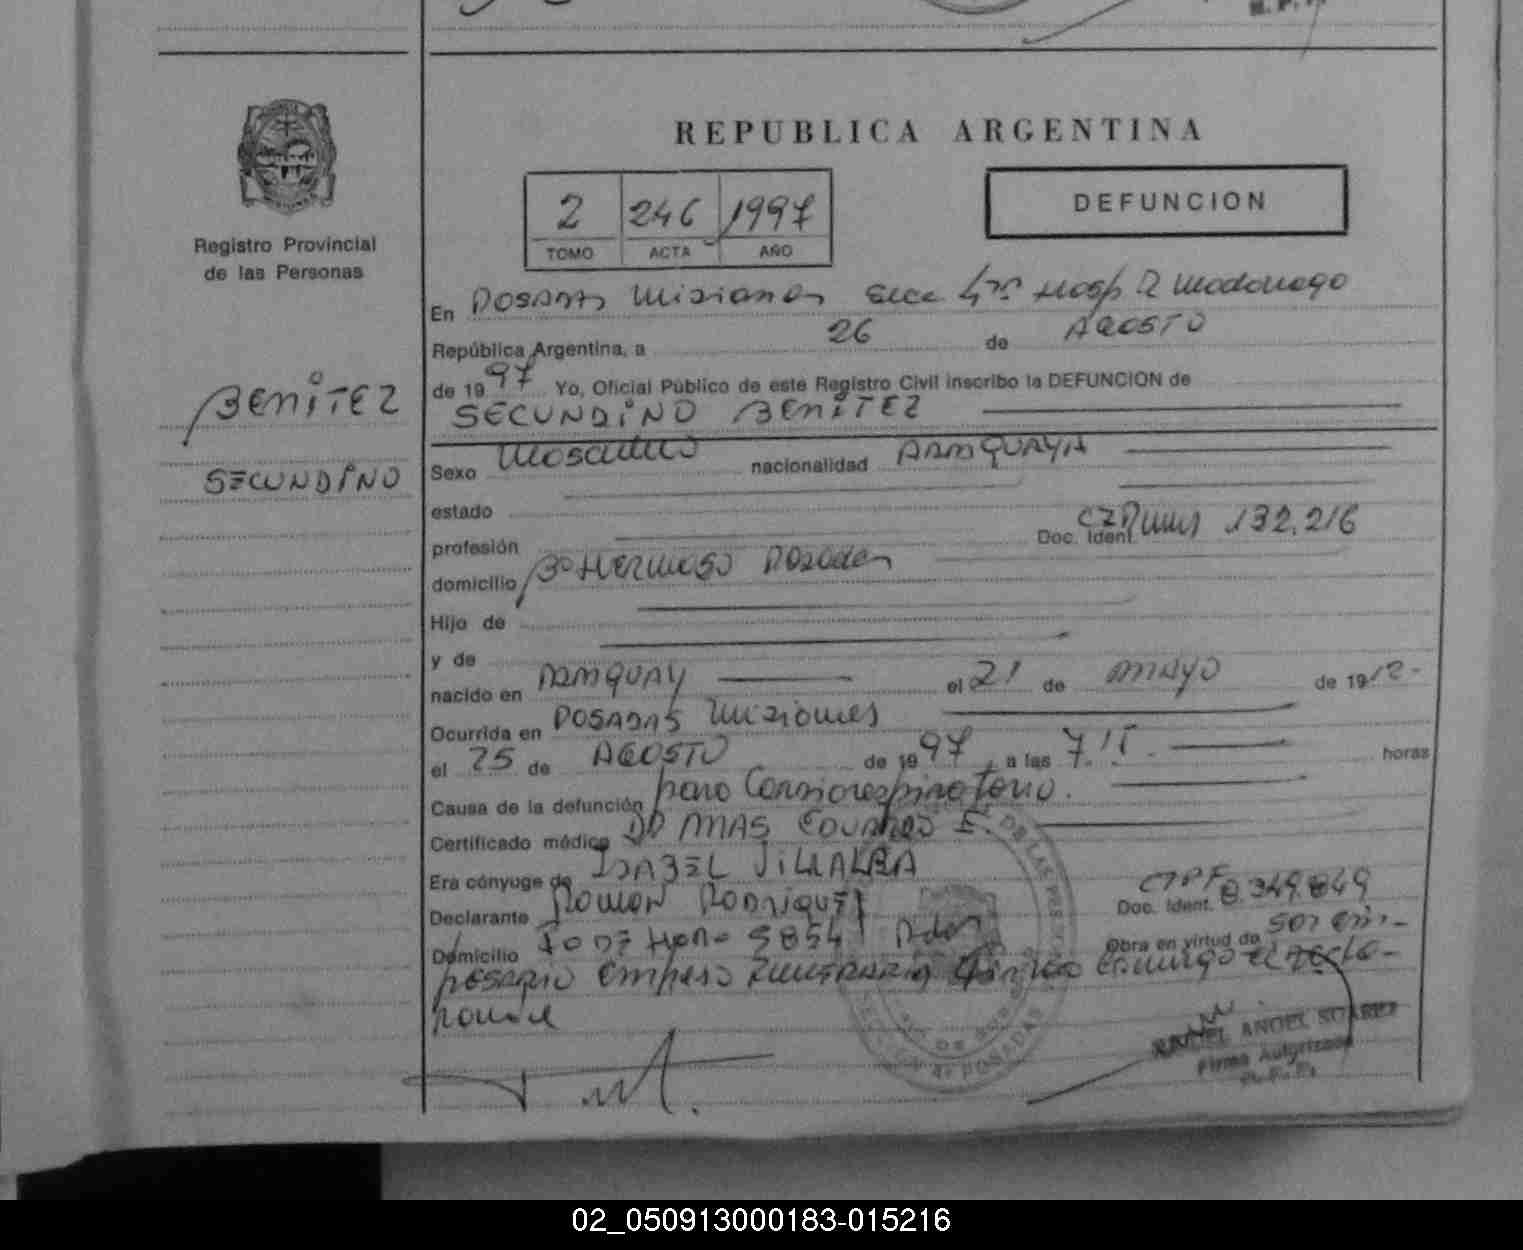 REPUBLICA ARGENTINA
2 246 1997
TOMO ACTA AÑO
DEFUNCION
Registro Provincial
de las Personas
BENITEZ
SECUNDINO
En POSADAS Misiones Secc 4ta Hosp R Madariaga
República Argentina, a 26 de AGOSTO
de 1997 Yo, Oficial Público de este Registro Civil inscribo la DEFUNCION de
SECUNDINO BENITEZ
Sexo Masculino nacionalidad PARAGUAYA
estado
profesión Doc. Ident. 132.216
domicilio Bº Hermoso Posadas
Hijo de
y de
nacido en PARAGUAY el 21 de MAYO de 1912
Ocurrida en POSADAS Misiones
el 25 de AGOSTO de 1997, a las 7.15 horas
Causa de la defunción paro Cardiorespiratorio.
Certificado médico DR MAS EDUARDO E.
Era cónyuge de ISABEL VILLALBA
Declarante ROMON RODRIGUEZ Doc. Ident. 8.349.849
Domicilio 3854 Pdas Obra en virtud de ser em-
pesario Empresa funeraria firma conmigo el decla-
rante
DE LAS PERSONAS
4ª POSADAS
ANGEL SUAREZ
Firma Autorizada
R. P. P.
02_050913000183-015216